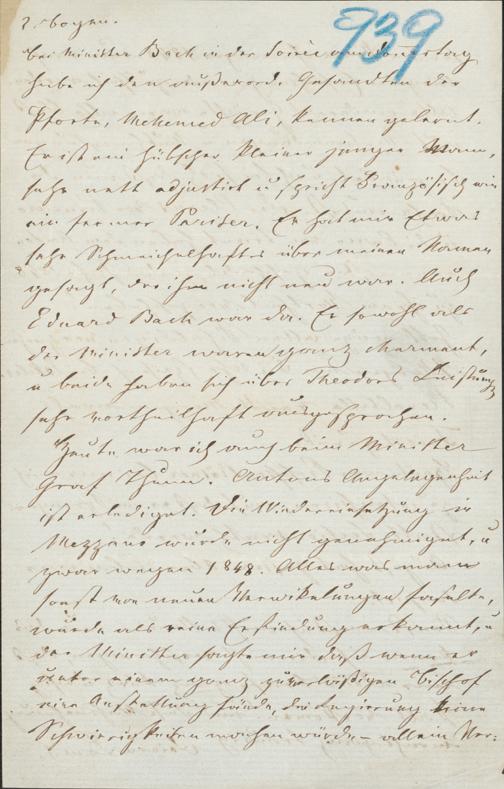 2. Bogen.
939
Bei Minister Bach in der Soirée am Donnerstag
habe ich den außerord. Gesandten der
Pforte, Mehemed Ali, kennen gelernt.
Er ist ein hübscher kleiner junger Mann,
sehr nett adjustirt u spricht Französisch wie
ein Pariser. Er hat mir etwas
sehr Schmeichelhaftes über meinen Namen
gesagt, der ihm nicht neu war. Auch
Eduard Bach war da. Er sowohl als
der Minister waren ganz charmant,
u beide haben sich über Theodors Leistung
sehr vortheilhaft ausgesprochen.
Heute war ich auch beim Minister
Graf Thun. Antons Angelegenheit
ist erledigt. Die Wiedereinsetzung in
Mezzana wurde nicht genehmiget, u
zwar wegen 1848. Alles was man
sonst von neuen Verwikelungen faselte,
wurde als reine Erfindung erkannt, u
der Minister sagte mir daß wenn er
unter einem ganz zuverläßigen Bischof
eine Anstellung fände, die Regierung keine
Schwierigkeiten machen würde – allein Ver: